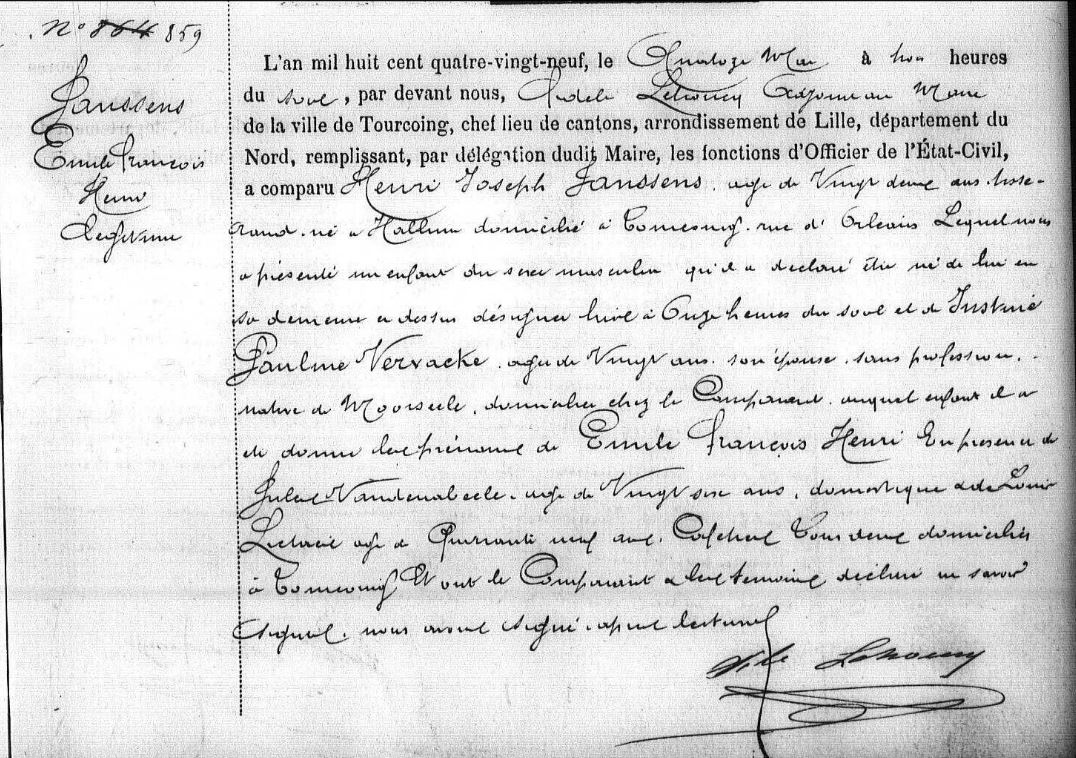 N° 864 859
Janssens
Emile François
Henri
Légitime
L'an mil huit cent quatre-vingt-neuf, le Quatorze Mai à trois heures
du soir, par devant nous, Fidèle Lehoucq Adjoint au Maire
de la ville de Tourcoing, chef lieu de cantons, arrondissement de Lille, département du
Nord, remplissant, par délégation dudit Maire, les fonctions d'Officier de l'État-Civil,
a comparu Henri Joseph Janssens. agé de Vingt deux ans tisse-
rand. né à Halluin domicilié à Tourcoing. rue d'Orléans Lequel nous
a présenté un enfant du sexe masculin qu'il a déclaré être né de lui en
sa demeure ci dessus désignée hier à Onze heures du soir et de Justine
Pauline Vervacke. agée de Vingt ans. son épouse. sans profession.
native de Moorseele. domiciliée chez le Comparant. auquel enfant il a
été donné les prénoms de Emile François Henri En présence de
Jules Vandenabeele. agé de Vingt six ans. domestique et de Louis
agé de Quarante neuf ans. Tous deux domiciliés
à Tourcoing Et ont le Comparant et les témoins déclaré ne savoir
signer. nous avons signé. après lecture
Fidèle Lehoucq